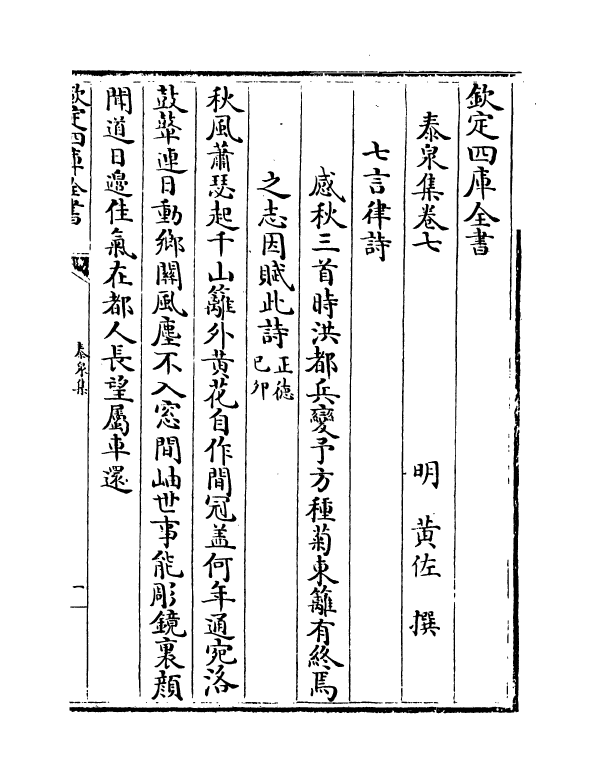 欽定四庫全書
泰泉集卷七
明 黃佐 撰
七言律詩
感秋三首時洪都兵變予方種菊東籬有終焉
之志因賦此詩正德己卯
秋風蕭瑟起千山籬外黃花自作閒冠蓋何年通宛洛
鼓鼙連日動鄉關風塵不入窓間岫世事能彫鏡裏顔
聞道日邊佳氣在都人長望屬車還
欽定四庫全書
泰泉集
一